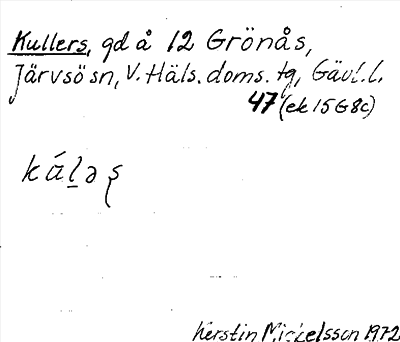 Kullers, gd å 12 Grönås,
Järvsö sn, V. Häls. doms. tg, Gävl. l.
47 (ek 15G8c)
kálәș
Kerstin Mickelsson 1972